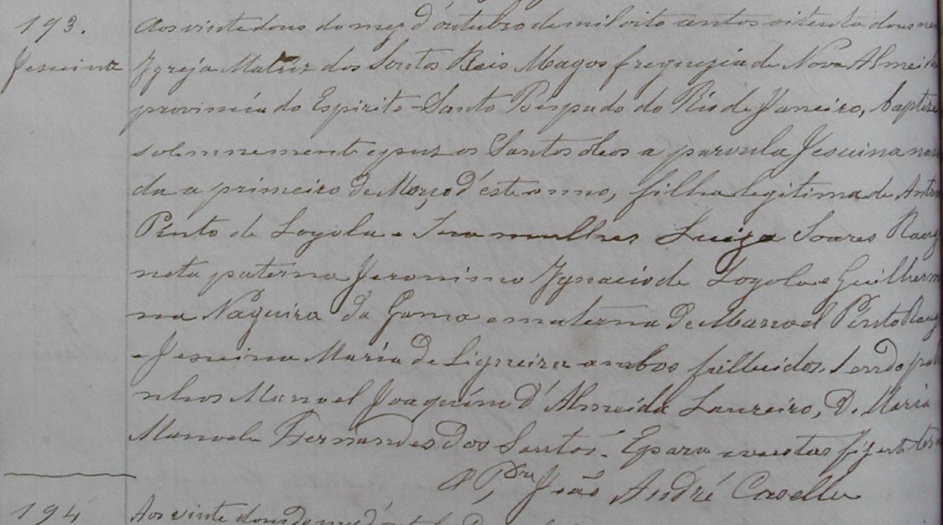 193.
Jesuina
Aos vinte dous do mez d'outubro de mil oito centos oitenta dous n
Igreja Matriz dos Santos Reis Magos freguezia de Nova Almeid
provincia do Espirito-Santo Bispado do Rio de Janeiro, baptise
solemnemente e puz os Santos oleos a parvula Jesuina nas
da a primeiro de Março d'este anno, filha legitima de Anto
Pinto de Loyola e Sua mulher Luiza Soares
neta paterna Jeronimo Ignacio de Loyola e Guilherm
na da Gama e materna de Manoel Pinto
e Jesuina Maria de Siqueira ambos fallecidos. Sendo pa
nhos Manoel Joaquim d'Almeida Loureiro, D. Maria
Manoela Fernandes dos Santos. E para constar fiz este
O Pdre João André Casella
194
Aos vinte dous do mez d'outub